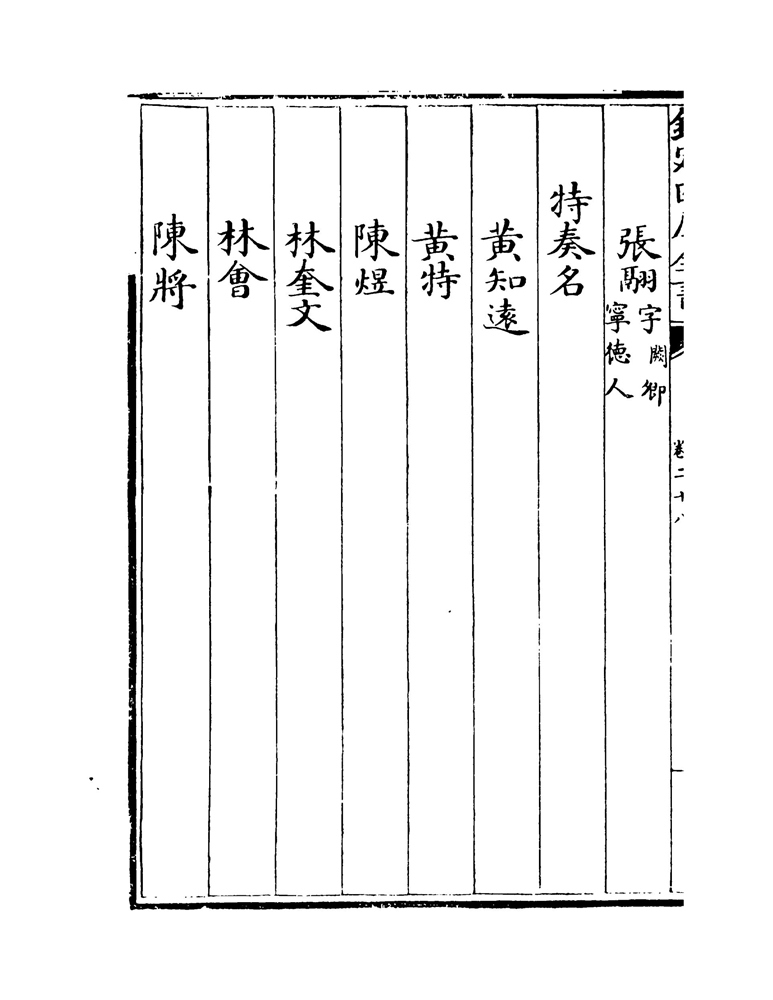 欽定四庫全書
卷二十八
張翮字闕卿
寧德人
特奏名
黃知遠
黃特
陳煜
林奎文
林會
陳將